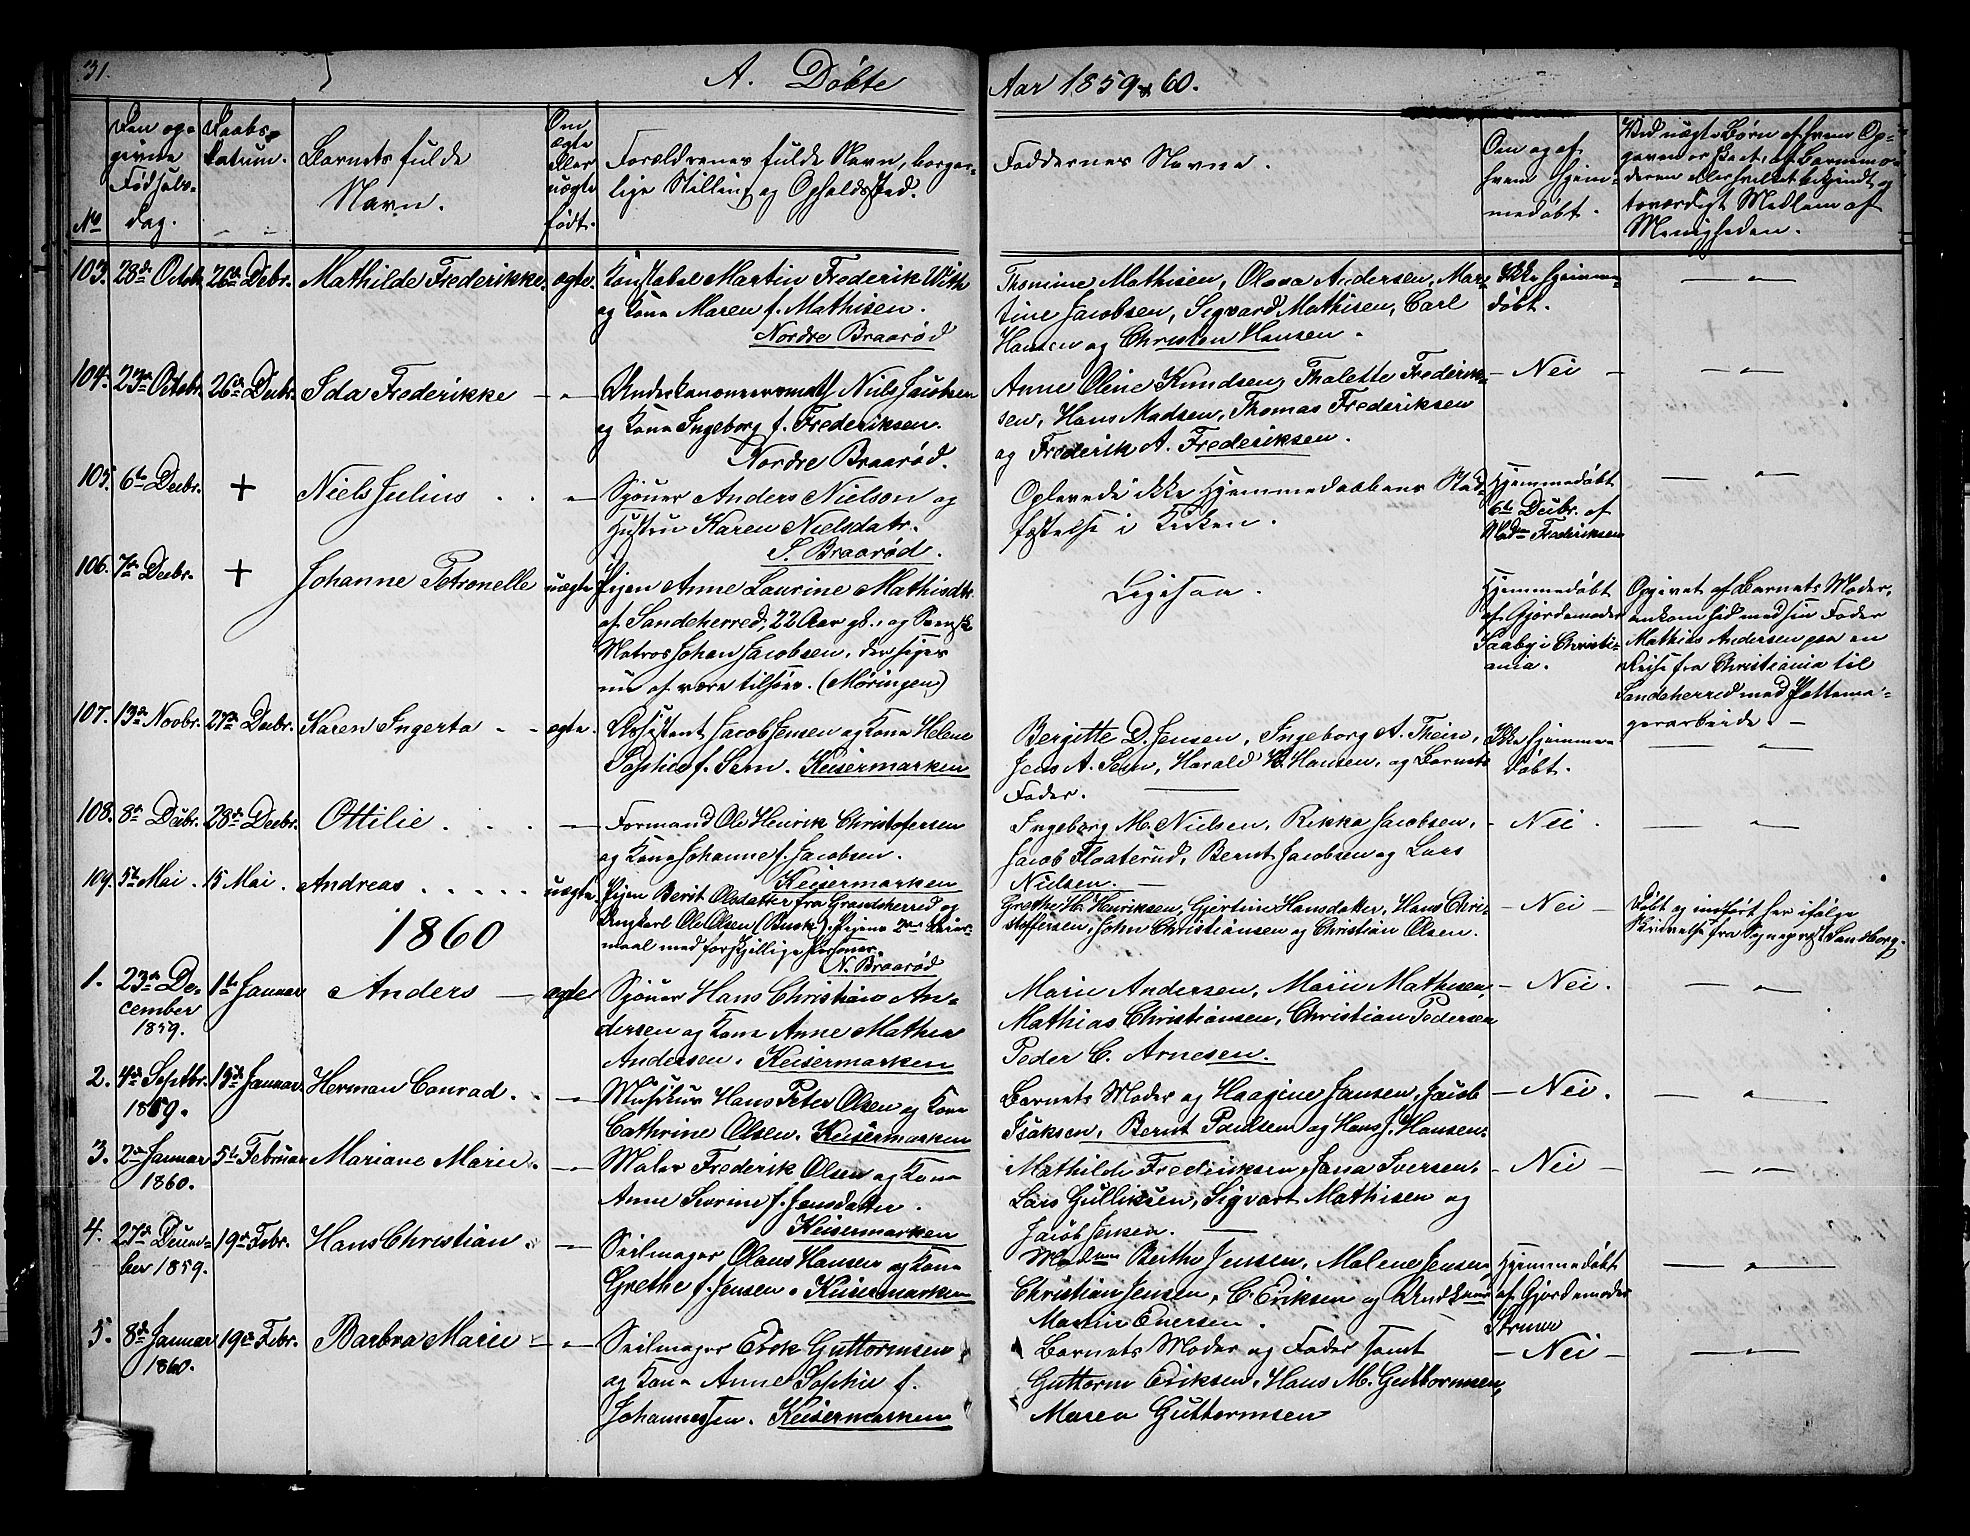 31.
A. Døbte
Aar 1859 & 60.
No
Den op-
givne
Fødsels-
dag.
Daabs-
datum.
Barnets fulde
Navn.
Om
ægte
eller
uægte
født.
Forældrenes fulde Navn, borger-
lige Stilling og Opholdssted.
Faddernes Navne.
Om og af
hvem hjem-
medøbt.
Ved uægte Børn af hvem Op-
gaven er skeet, af Barnemo-
deren eller hvilket bekjendt og
troværdigt Medlem af
Menigheden.
103. 28de Octobr. 26de Decbr. Mathilde Frederikke. ægte.
Konstabel Martin Frederik With
og Kone Maren f. Mathisen.
Nordre Braarød
Thomine Mathisen, Olava Andersen, Mar-
tine Jacobsen, Sigvard Mathisen, Carl
Hansen og Christen Hansen.
Ikke hjemme-
døbt.
— " —
104. 23de Octobr. 26de Decbr. Ida Frederikke — " —
Underkanoneersmath Niels Jacobsen
og Kone Ingeborg f. Frederiksen.
Nordre Braarød.
Anne Oline Knudsen, Thalette Frederik-
sen, Hans Madsen, Thomas Frederiksen
og Frederik A. Frederiksen.
— Nei —
— " —
105. 6te Decbr. + Niels Julius . . "
Sjøuer Anders Nielsen og
Hustru Karen Nielsdatr.
S. Braarød.
Oplevede ikke Hjemmedaabens Stad-
fæstelse i Kirken.
Hjemmedøbt
6te Decbr. af
Madm Frederiksen
— " —
106. 7de Decbr. + Johanne Petronelle uægte
Pigen Anne Laurine Mathisdtr.
af Sandeherred, 22 Aar gl., og Svensk
Matros Johan Jacobsen, der siges
nu at være tilsøes. (Møringen)
Ligesaa.
Hjemmedøbt
af Gjordemoder
Saaby i Christi-
ania.
Opgivet af Barnets Moder,
ankom hid med sin Fader
Mathias Andersen paa en
Reise fra Christiania til
Sandeherred med Pottema-
gerarbeide —
107. 13de Novbr. 27de Decbr. Karen Ingerta . . ægte.
Assistent Jacob Jensen og Kone Helene
Sophie f. Sem. Keisermarken
Bergitte D. Jensen, Ingeborg A. Thein,
Jens A. Sem, Harald H. Hansen, og Barnets
Fader.
Ikke hjemme-
døbt.
— " —
108. 8de Decbr. 28de Decbr. Ottilie . . . — " —
Formand Ole Henrik Christofersen
og Kone Johanne f. Jacobsen.
Keisermarken
Ingeborg M. Nielsen, Rikka Jacobsen,
Jacob Floaterud, Bernt Jacobsen og Lars
Nielsen. —
— Nei .
— " —
109. 5te Mai . 15 Mai . Andreas . . . . . uægte.
Pigen Berit Olsdatter fra Grandsherred og
Ungkarl Ole Olsen (Busk). Pigens 2det Leier-
maal med forskjellige Personer.
N. Braarød
Grethe H. Henriksen, Gjertine Hansdatter, Hans Chri-
stoffersen, John Christiansen og Christian Olsen.
— Nei —
Døbt og indført her ifølge
Skrivelse fra Sognepræst Sandberg.
1860
1. 23de De-
cember
1859.
1ste Januar Anders — ægte
Sjøuer Hans Christian An-
dersen og Kone Anne Mathea
Andersen. Keisermarken
Marie Andersen, Marie Mathisen,
Mathias Christiansen, Christian Pedersen
Peder C. Arnesen.
— Nei .
— " —
2. 4de Septbr.
1859.
15de Januar. Herman Conrad. — " —
Musikus Hans Peter Olsen og Kone
Cathrine Olsen. Keisermarken
Barnets Moder og Haagine Jansen, Jacob
Isaksen, Bernt Paulsen og Hans J. Hansen.
— Nei .
— " —
3. 2den Januar
1860.
5te Februar Mariane Marie. — " —
Maler Frederik Olsen og Kone
Anne Severine f. Jensdatter.
Keisermarken
Mathilde Frederiksen, Jana Iversen,
Lars Gulliksen, Sigvart Mathisen og
Jacob Jensen. —
— Nei —
— " —
4. 27de Decem-
ber 1859.
19de Febr. Hans Christian — " —
Seilmager Olaus Hansen og Kone
Grethe f. Jensen. Keisermarken
Madmm Berthe Jensen, Malene Jensen,
Christian Jensen, C. Eriksen og
Martin Eversen.
Hjemmedøbt
af Gjordemoder
— " —
5. 8de Januar
1860.
19de Febr. Barbra Marie — " —
Seilmager Erik Guttormsen
og Kone Anne Sophie f.
Johannessen. Keisermarken
Barnets Moder og Fader samt
Guttorm Eriksen, Hans M. Guttormsen,
Maren Guttormsen
— Nei —
— " —